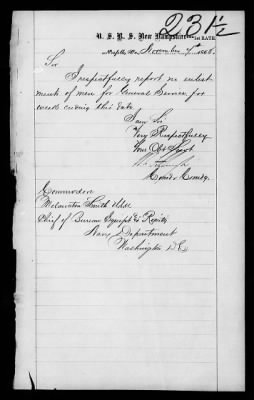 231½
U. S. R. S. New Hampshire
1st RATE
November 7th 1868.
Sir
I respectfully report no enlist
ments of men for General Service for
week ending this date
I am Sir
Very Respectfully
Your Obt Servt
Comd'r Comdg.
Commodore
Melancton Smith U.S.N
Chief of Bureau Equipt & Recrtg
Navy Department
Washington D.C.